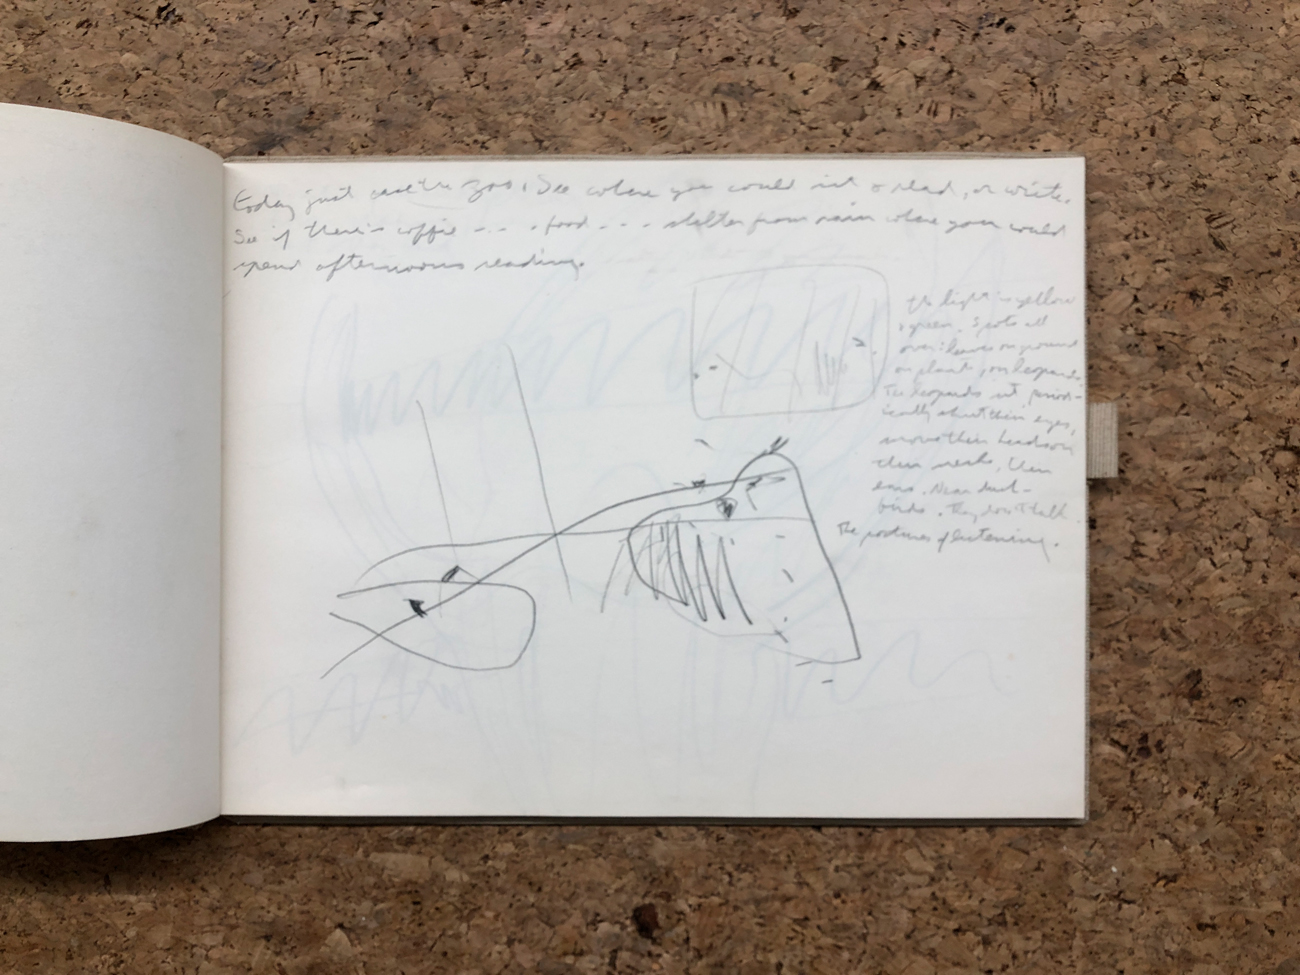 Today just case the zoo. See where you could sit & read, or write.
See if there's coffee - - . food - - - shelter from rain where you could
spend afternoons reading.
the light is yellow
& green. Spots all
over: leaves on ground
on plants, on leopards.
The leopards sit period-
ically shut their eyes,
move their heads on
their necks, their
ears. Near
birds. They don't talk.
The postures of listening.